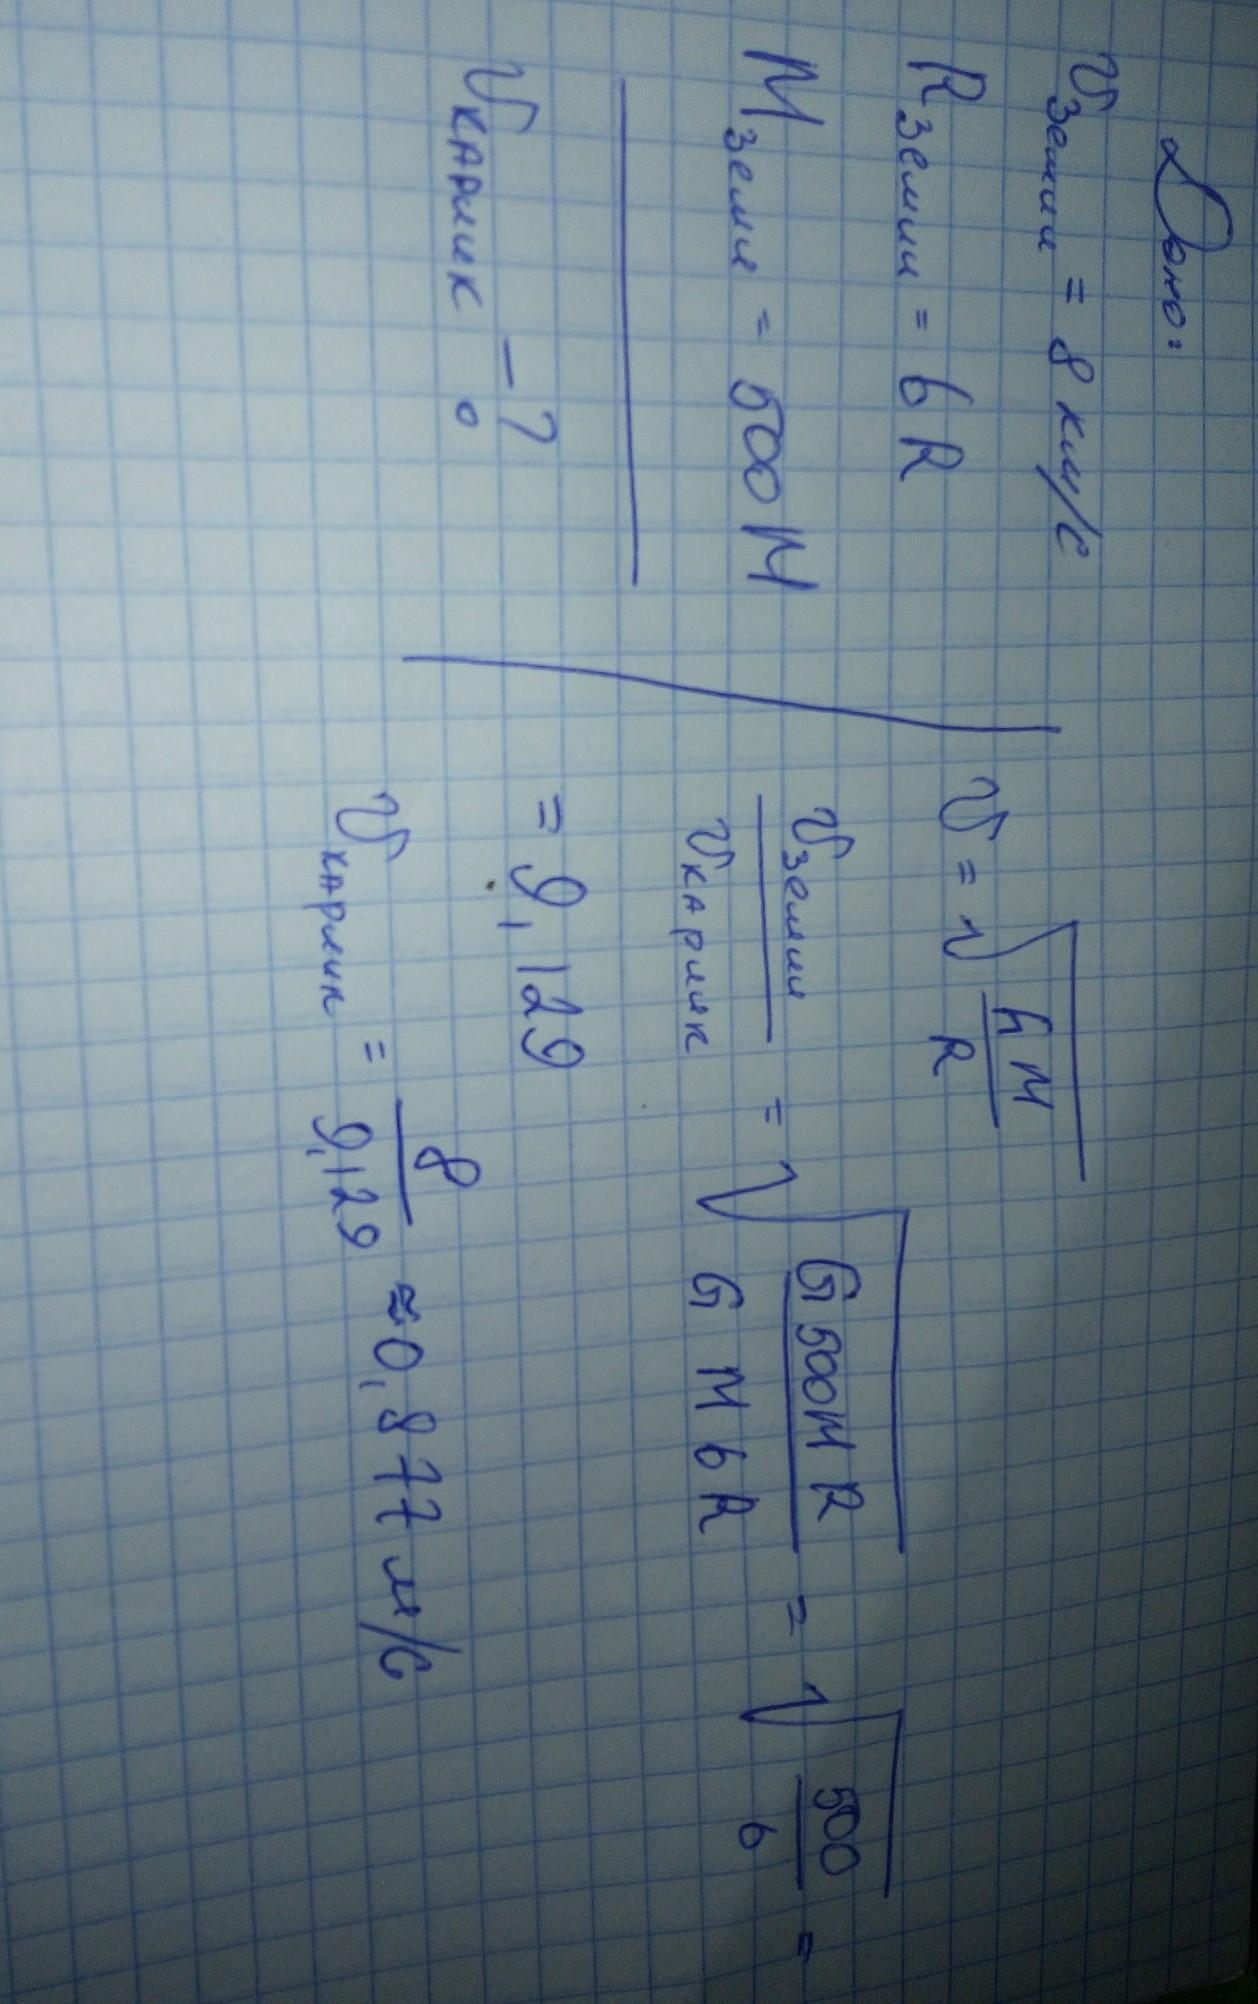 Дано:
υземли = 8 км/с
Rземли = 6 R
Mземли = 500 M
υкарлик - ?
υ = √(GM/R)
υземли/υкарлик = √(G 500 M R/G M 6 R) = √(500/6) =
= 9,129
υкарлик = 8/9,129 ≈ 0,877 м/с